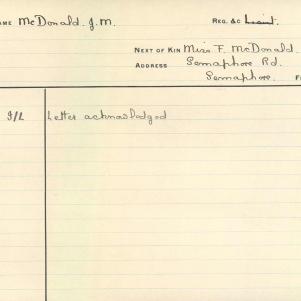 AME McDonald. J. M. REG. &C Lieut.
NEXT OF KIN Miss F. McDonald.
ADDRESS Semaphore Rd.
Semaphore. F
I/L Letter acknowledged